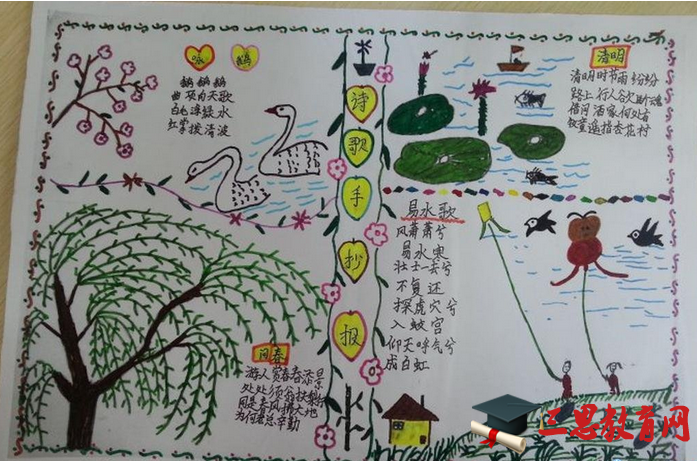 咏鹅
鹅鹅鹅
曲项向天歌
白毛浮绿水
红掌拨清波
诗歌手抄报
清明
清明时节雨纷纷
路上行人欲断魂
借问酒家何处有
牧童遥指杏花村
易水歌
风萧萧兮
易水寒
壮士一去兮
不复还
探虎穴兮
入蛟宫
仰天呼气兮
成白虹
问春
游人赏春春添景
处处须翁扶
问春风播大地
为何君总辛勤
三思教育网